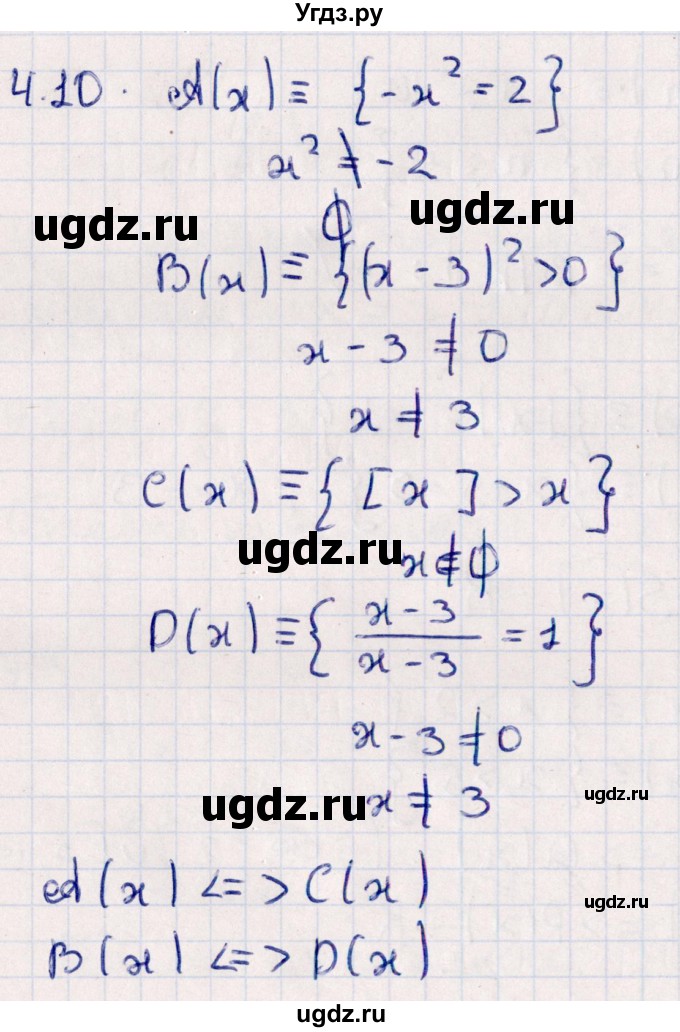 Угдз.ру
4.10. A(x) ≡ {-x² = 2}
x² ≠ -2
ugdz.ru
ugdz.ru
ϕ
B(x) ≡ {(x - 3)² > 0}
x - 3 ≠ 0
x ≠ 3
C(x) ≡ {[x] > x}
ugdz.ru
x ∉ ϕ
D(x) ≡ {\frac{x-3}{x-3} = 1}
x - 3 ≠ 0
ugdz.ru
x ≠ 3
ugdz.ru
A(x) <=> C(x)
ugdz.ru
B(x) <=> D(x)
ugdz.ru